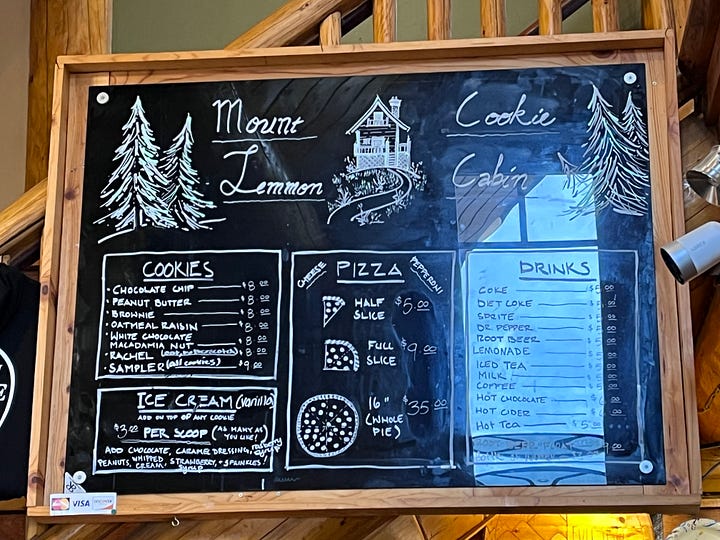 Mount
Lemmon
Cookie
Cabin
COOKIES
CHOCOLATE CHIP $8.00
PEANUT BUTTER $8.00
BROWNIE $8.00
OATMEAL RAISIN $8.00
WHITE CHOCOLATE
MACADAMIA NUT $8.00
RACHEL (oat, butterscotch) $8.00
SAMPLER (all cookies) $9.00
ICE CREAM (vanilla)
ADD ON TOP OF ANY COOKIE
$3.00 PER SCOOP (AS MANY AS
YOU LIKE!)
ADD CHOCOLATE, CARAMEL DRESSING, raspberry syrup
PEANUTS, WHIPPED CREAM, STRAWBERRY syrup, + SPRINKLES!
CHEESE PIZZA PEPPERONI
HALF
SLICE $5.00
FULL
SLICE $9.00
16"
(WHOLE
PIE) $35.00
DRINKS
COKE
DIET COKE
SPRITE
DR. PEPPER
ROOT BEER
LEMONADE
ICED TEA
MILK
COFFEE
HOT CHOCOLATE
HOT CIDER
HOT TEA
VISA